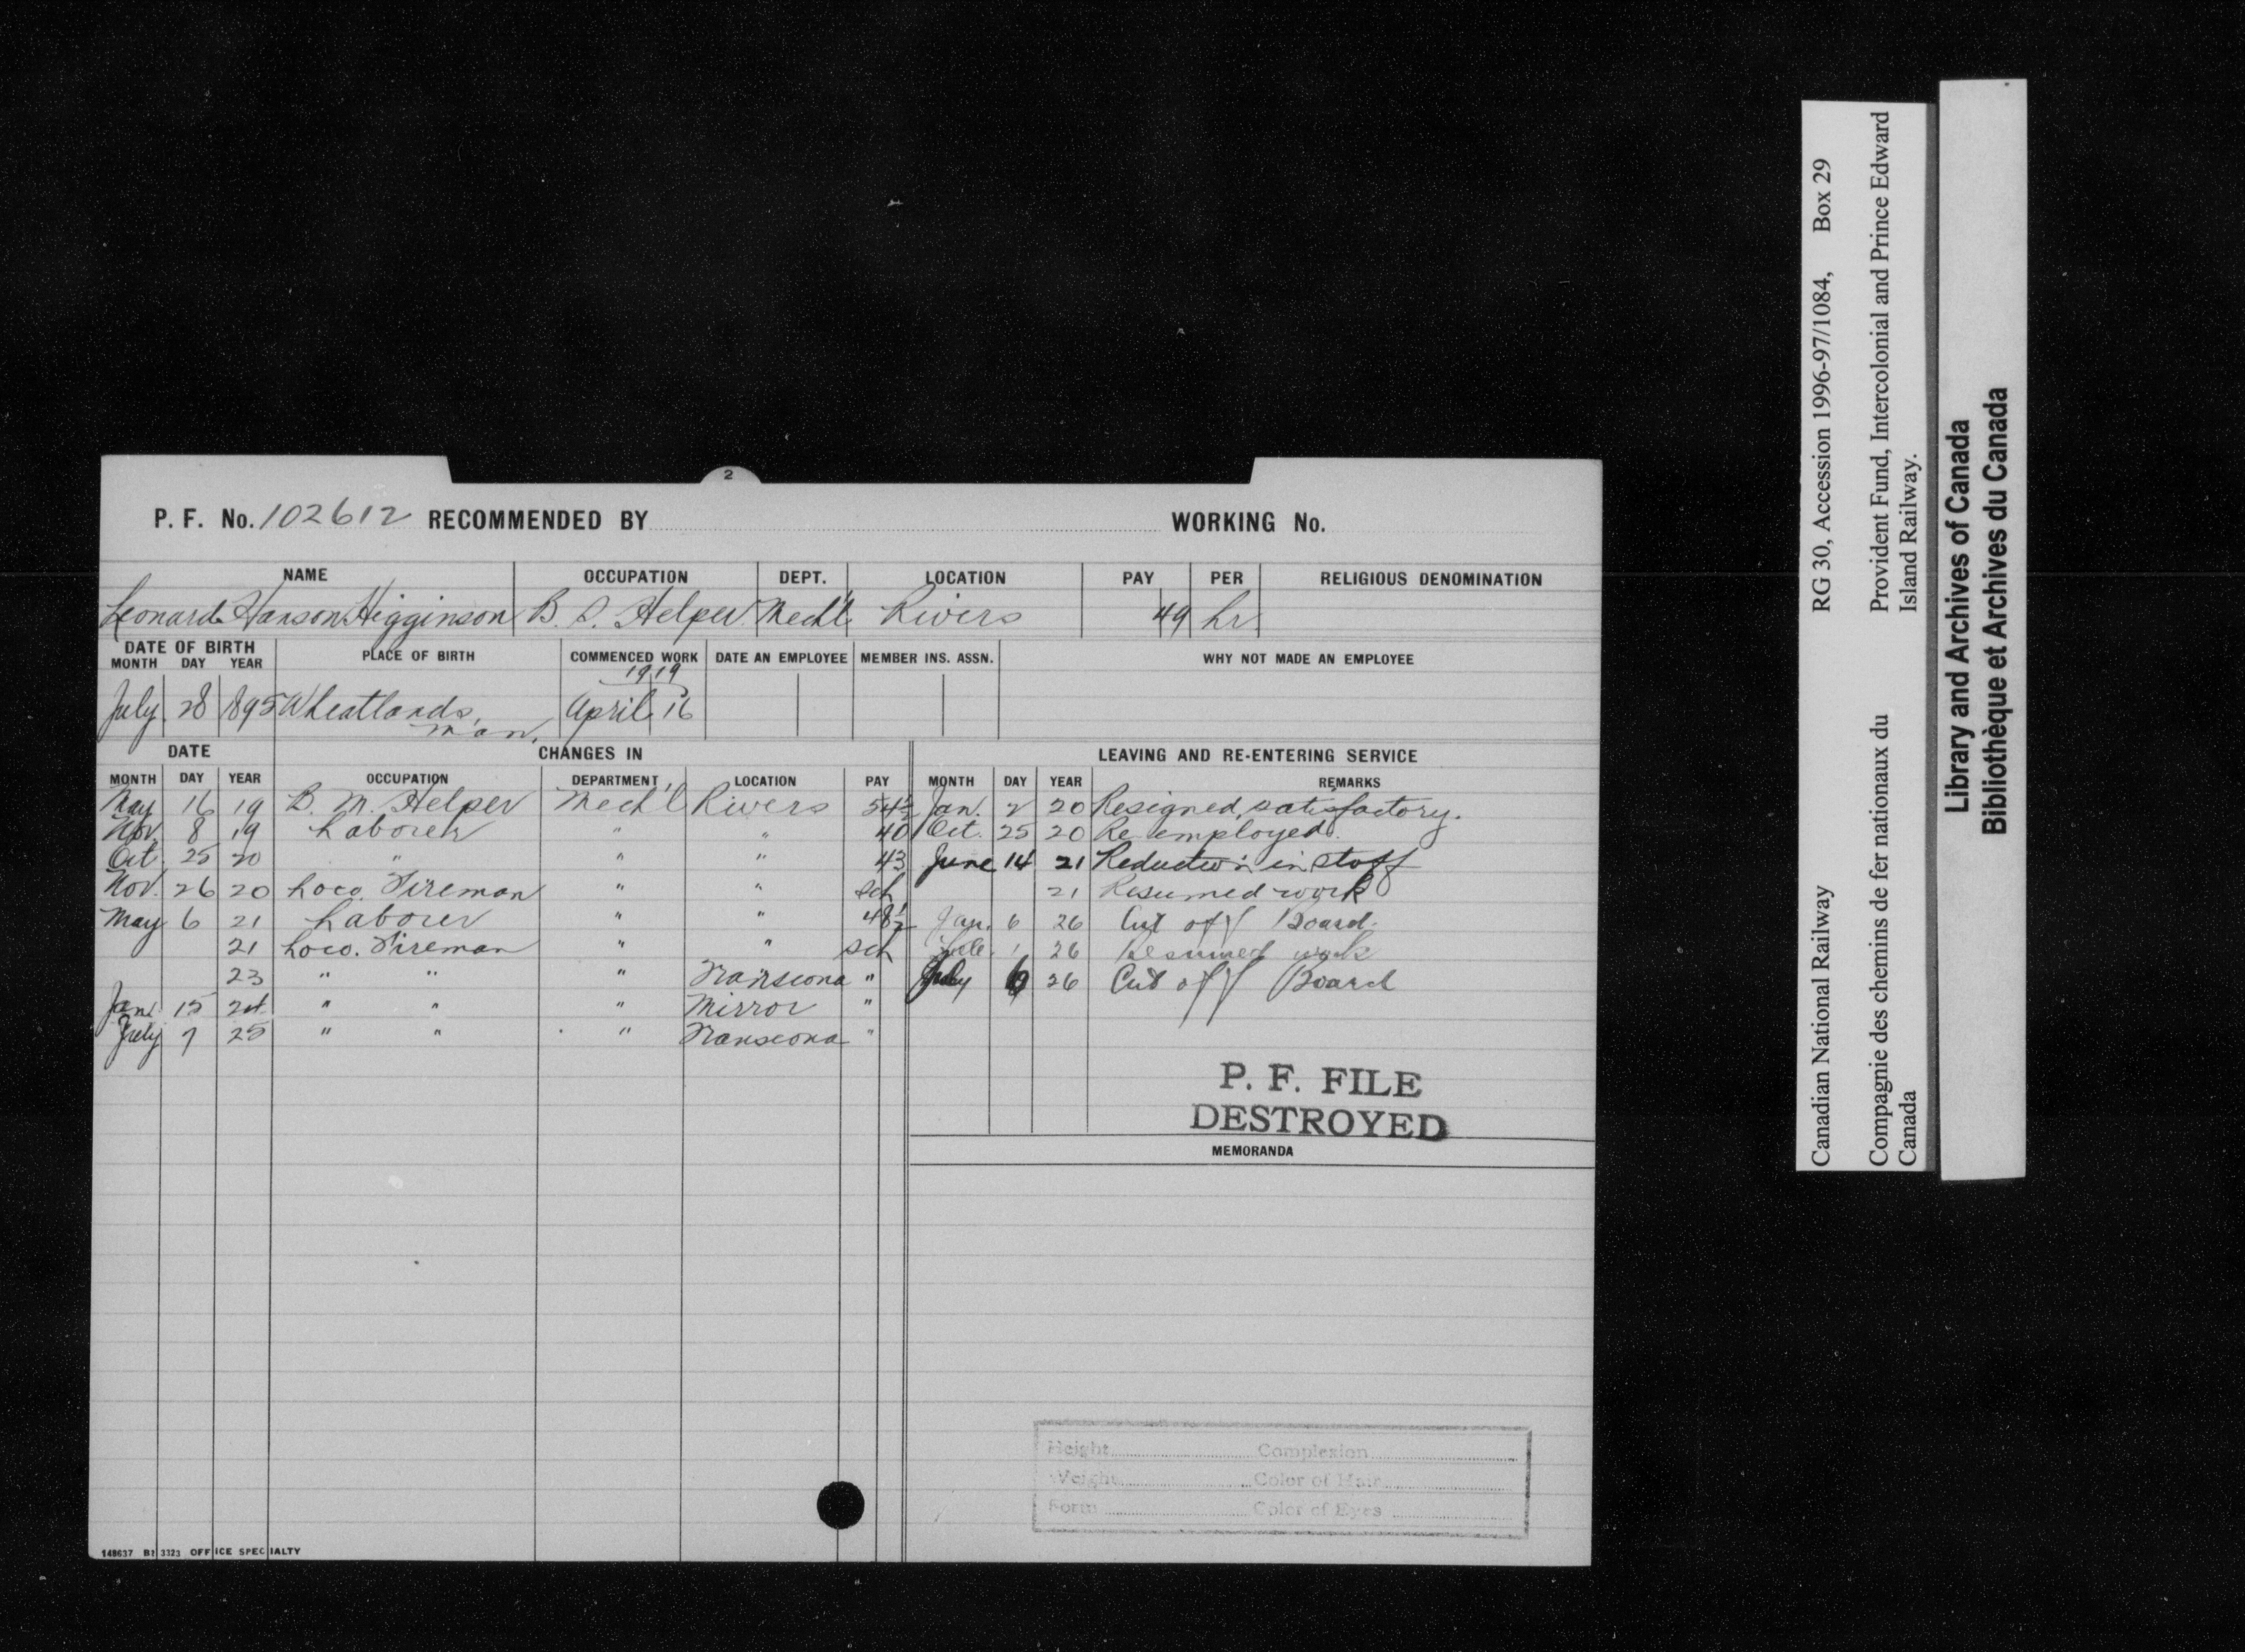 2
P. F. No. 102612 RECOMMENDED BY WORKING No.
NAME OCCUPATION DEPT. LOCATION PAY PER RELIGIOUS DENOMINATION
Leonard Hanson Higginson B. S. Helper Mech'l Rivers 49 hr
DATE OF BIRTH PLACE OF BIRTH COMMENCED WORK DATE AN EMPLOYEE MEMBER INS. ASSN. WHY NOT MADE AN EMPLOYEE
MONTH DAY YEAR
1919
July 28 1895 Wheatlands, April 16
Man.
DATE CHANGES IN LEAVING AND RE-ENTERING SERVICE
MONTH DAY YEAR OCCUPATION DEPARTMENT LOCATION PAY MONTH DAY YEAR REMARKS
May 16 19 B. M. Helper Mech'l Rivers 54½ Jan. 2 20 Resigned, satisfactory.
Nov. 8 19 Laborer " " 40 Oct. 25 20 Re employed.
Oct. 25 20 " " " 43 June 14 21 Reduction in staff
Nov. 26 20 Loco. Fireman " " sch 21 Resumed work
May 6 21 Laborer " " 48½ Jan. 6 26 Cut off Board.
21 Loco. Fireman " " sch 1 26 Resumed work
23 " " " Transcona " July 26 Cut off Board
Jan. 15 24 " " " Mirror "
July 7 25 " " " Transcona "
P. F. FILE
DESTROYED
MEMORANDA
Height Complexion
Weight Color of Hair
Form Color of Eyes
148637 B1 3323 OFFICE SPECIALTY
Canadian National Railway RG 30, Accession 1996-97/1084, Box 29
Compagnie des chemins de fer nationaux du Provident Fund, Intercolonial and Prince Edward
Canada Island Railway.
Library and Archives of Canada
Bibliothèque et Archives du Canada